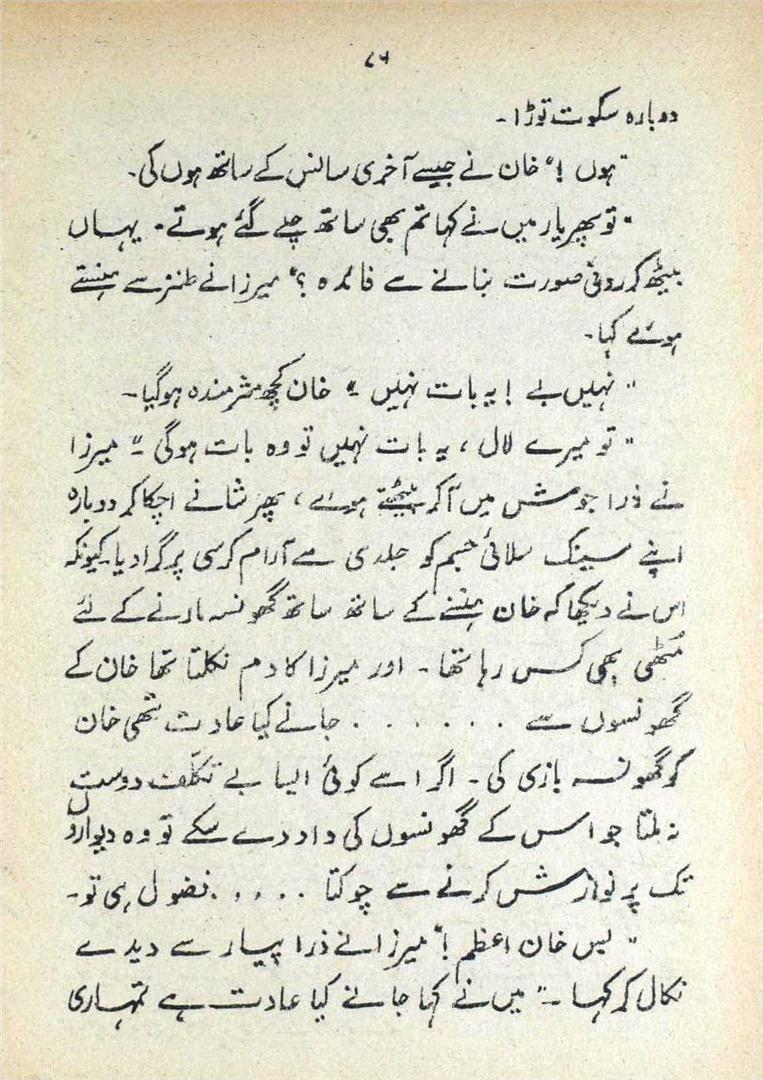 ۸۹
دوبارہ سکوت توڑا۔
"ہوں!" خان نے جیسے آخری سانس کے ساتھ ہوں کی۔
"تو پھر یار میں نے کہا تم بھی ساتھ چلے گئے ہوتے۔ یہاں
بیٹھ کر رونی صورت بنانے سے فائدہ؟" میرزا نے طنز سے ہنستے
ہوئے کہا۔
"نہیں بے! یہ بات نہیں" خان کچھ شرمندہ ہوگیا۔
"تو میرے لال، یہ بات نہیں تو وہ بات ہوگی" میرزا
نے ذرا جوش میں آکر بیٹھتے ہوئے، پھر شانے اچکا کر دوبارہ
اپنے سینک سلائی جسم کو جلدی سے آرام کرسی پر گرا دیا۔ کیونکہ
اس نے دیکھا کہ خان ہنسنے کے ساتھ ساتھ گھونسہ مارنے کے لئے
مُٹھی بھی کس رہا تھا۔ اور میرزا کا دم نکلتا تھا خان کے
گھونسوں سے ...... جانے کیا عادت تھی خان
کو گھونسہ بازی کی۔ اگر اسے کوئی ایسا بے تکلّف دوست
نہ ملتا جو اس کے گھونسوں کی داد دے سکے تو وہ دیواروں
تک پر نوازش کرنے سے چوکتا ..... فضول ہی تو۔
"بس خان اعظم!" میرزا نے ذرا پیار سے دیدے
نکال کر کہا۔ "میں نے کہا جانے کیا عادت ہے تمہاری